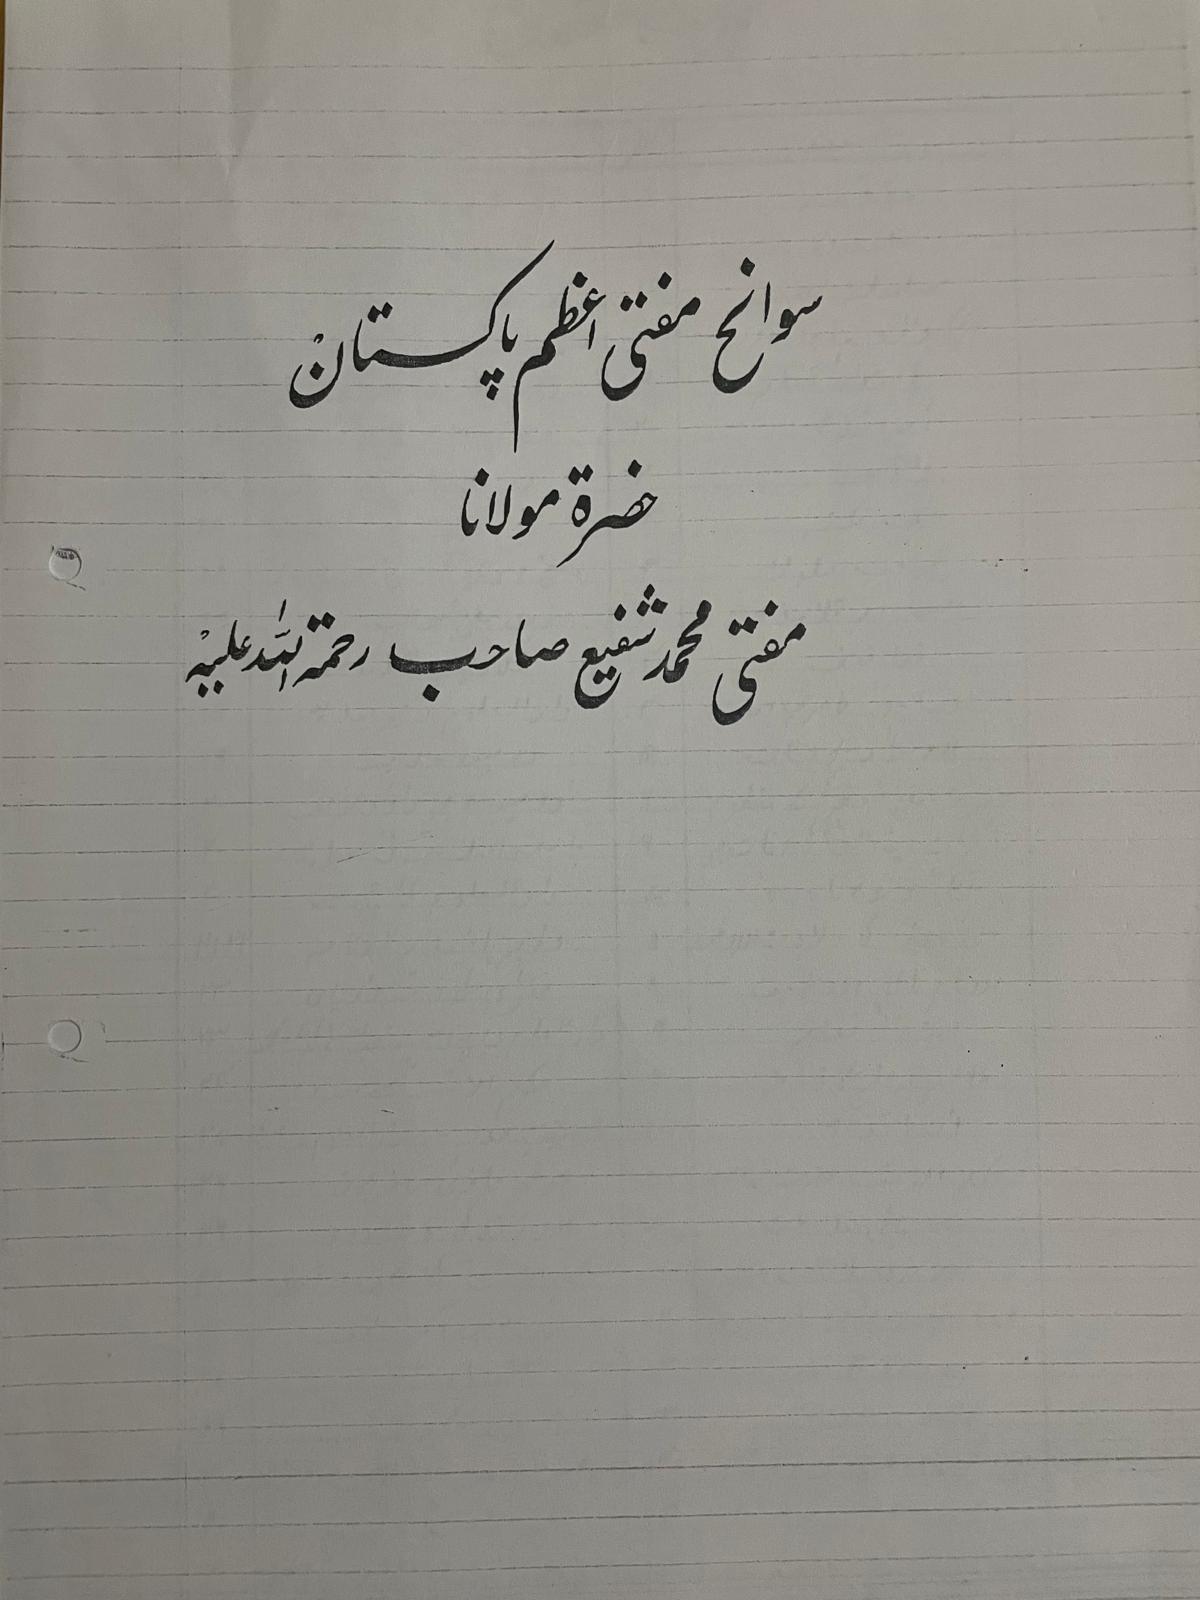 سوانح مفتی اعظم پاکستان
حضرۃ مولانا
مفتی محمد شفیع صاحب رحمۃ اللہ علیہ